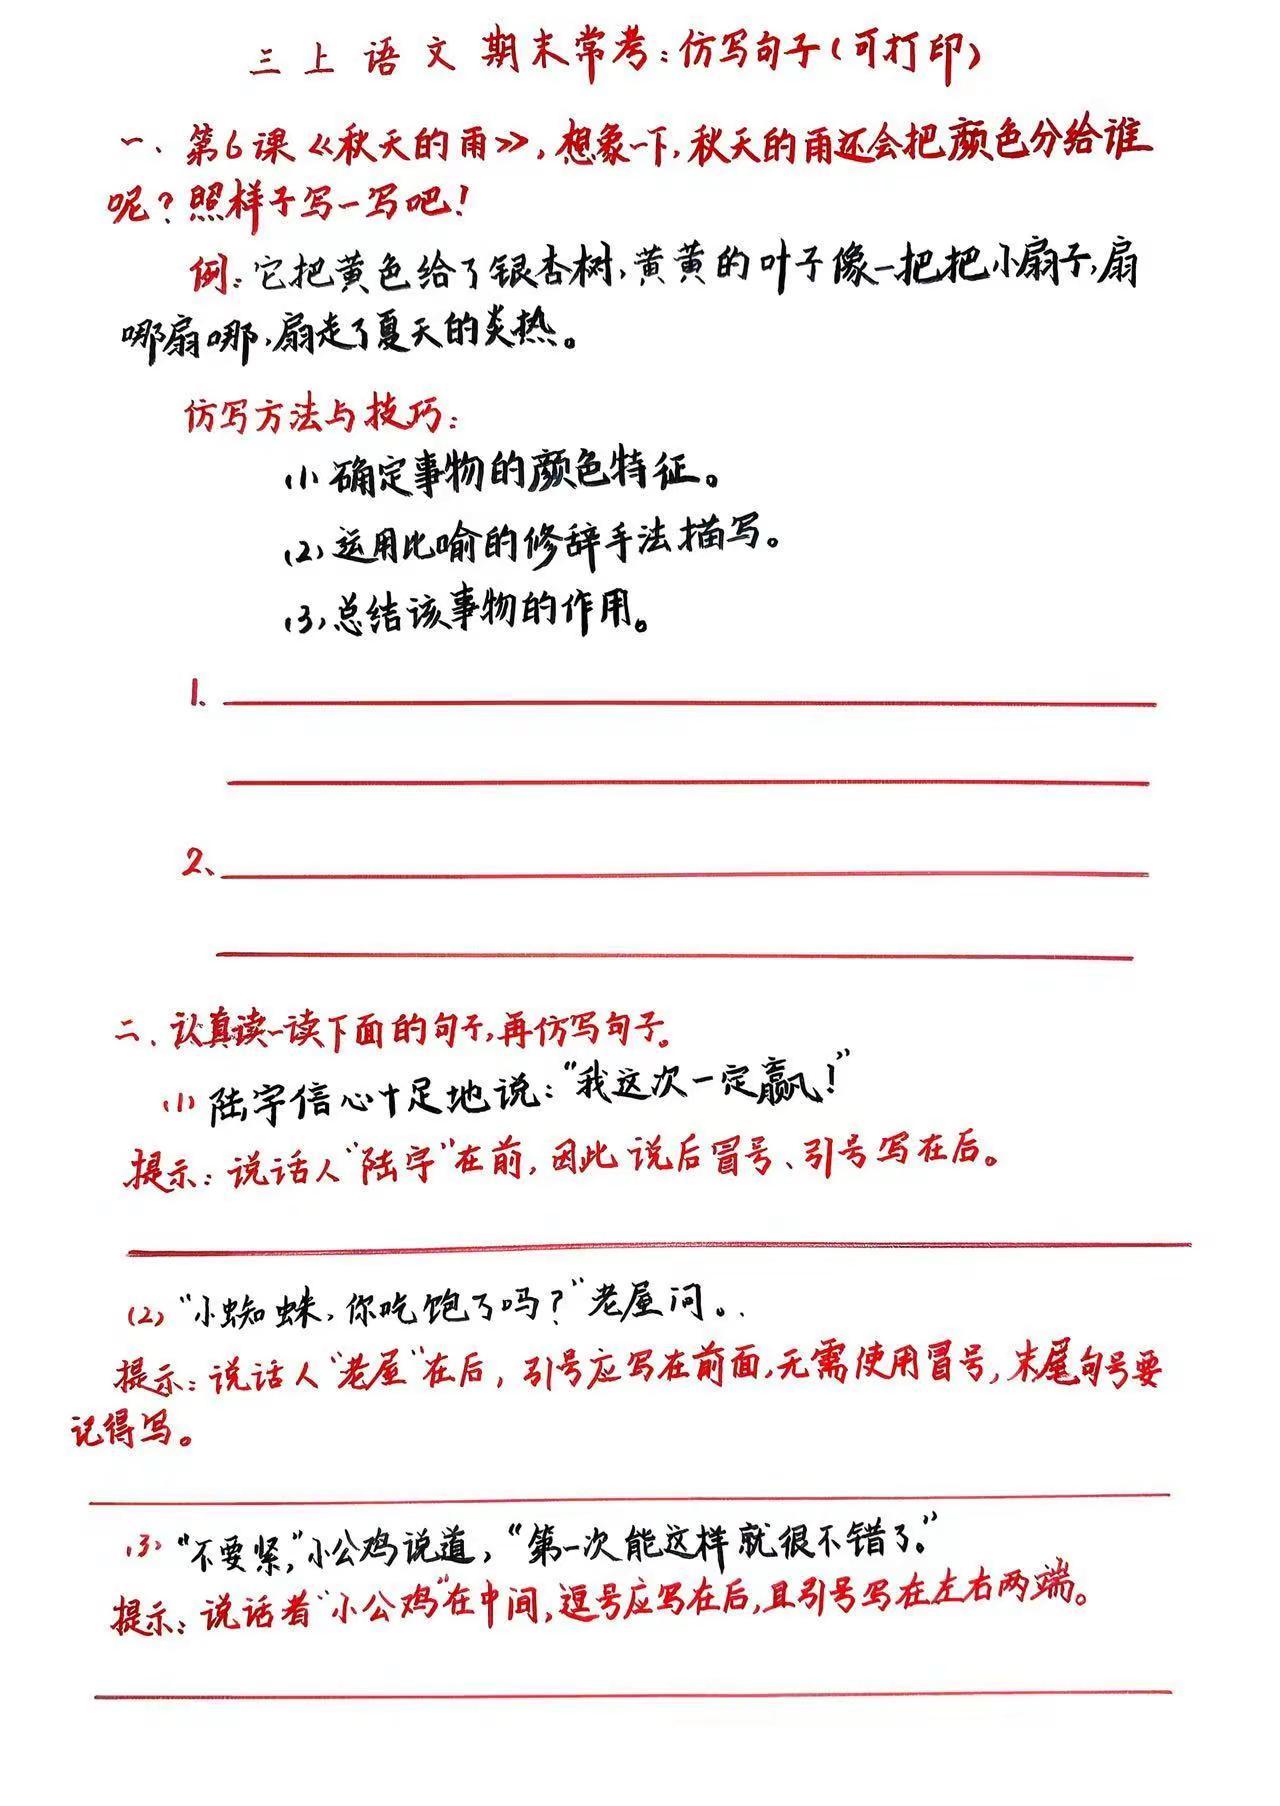 三上语文期末常考：仿写句子（可打印）
一、第6课《秋天的雨》，想象一下，秋天的雨还会把颜色分给谁
呢？照样子写一写吧！
例：它把黄色给了银杏树，黄黄的叶子像一把把小扇子，扇
哪扇哪，扇走了夏天的炎热。
仿写方法与技巧：
(1)确定事物的颜色特征。
(2)运用比喻的修辞手法描写。
(3)总结该事物的作用。
1.
2、
二、认真读一读下面的句子，再仿写句子。
(1)陆宇信心十足地说：“我这次一定赢！”
提示：说话人“陆宇”在前，因此说后冒号、引号写在后。
(2)“小蜘蛛，你吃饱了吗？”老屋问。
提示：说话人“老屋”在后，引号应写在前面，无需使用冒号，末尾句号要
记得写。
(3)“不要紧，”小公鸡说道，“第一次能这样就很不错了。”
提示：说话者“小公鸡”在中间，逗号应写在后，且引号写在左右两端。